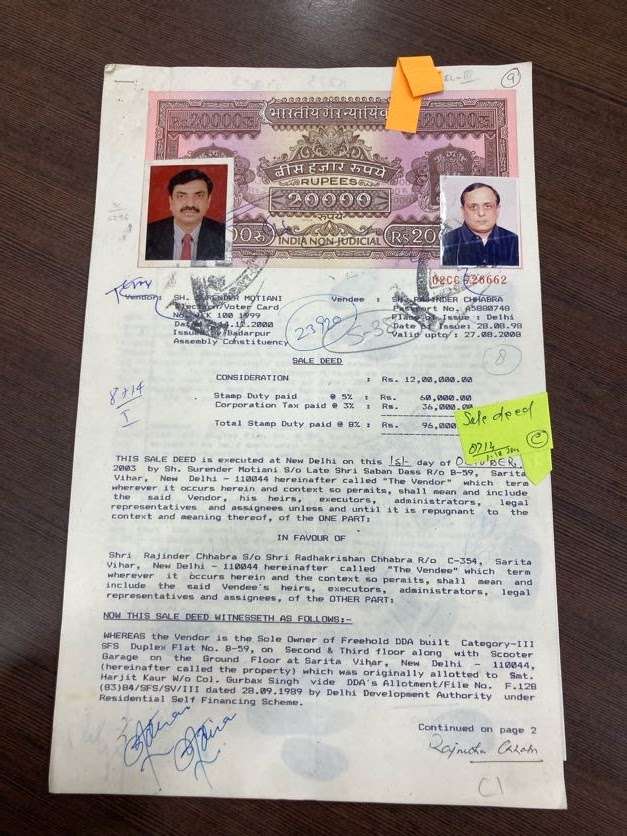 9
Rs.20000रु. भारतीय गैर न्यायिक Rs.20000रु.
बीस हजार रुपये
RUPEES
20000
रुपये
INDIA NON JUDICIAL
02CC 720662
Vendor: SH. SURENDER MOTIANI Vendee : SH. RAJINDER CHHABRA
Election/Voter Card Passport No. A5880748
No. 100 1999 Place of Issue : Delhi
14.11.2000 Date of Issue: 28.08.98
Badarpur Valid upto : 27.08.2008
Assembly Constituency
8
SALE DEED
CONSIDERATION : Rs. 12,00,000.00
Stamp Duty paid @ 5% : Rs. 60,000.00
Corporation Tax paid @ 3% : Rs. 36,000.00
Total Stamp Duty paid @ 8% : Rs. 96,000
8714
I
Sale deed
8714
THIS SALE DEED is executed at New Delhi on this 1st day of OCTOBER,
2003 by Sh. Surender Motiani S/o Late Shri Saban Dass R/o B-59, Sarita
Vihar, New Delhi - 110044 hereinafter called "The Vendor" which term
wherever it occurs herein and context so permits, shall mean and include
the said Vendor, his heirs, executors, administrators, legal
representatives and assignees unless and until it is repugnant to the
context and meaning thereof, of the ONE PART:
IN FAVOUR OF
Shri Rajinder Chhabra S/o Shri Radhakrishan Chhabra R/o C-354, Sarita
Vihar, New Delhi - 110044 hereinafter called "The Vendee" which term
wherever it occurs herein and the context so permits, shall mean and
include the said Vendee's heirs, executors, administrators, legal
representatives and assignees, of the OTHER PART;
NOW THIS SALE DEED WITNESSETH AS FOLLOWS:-
WHEREAS the Vendor is the Sole Owner of Freehold DDA built Category-III
SFS Duplex Flat No. B-59, on Second & Third floor along with Scooter
Garage on the Ground Floor at Sarita Vihar, New Delhi - 110044,
(hereinafter called the property) which was originally allotted to Smt.
Harjit Kaur W/o Col. Gurbax Singh vide DDA's Allotment/File No. F.128
(83)84/SFS/SV/III dated 28.09.1989 by Delhi Development Authority under
Residential Self Financing Scheme.
Continued on page 2
Rajinder Chhabra
C1